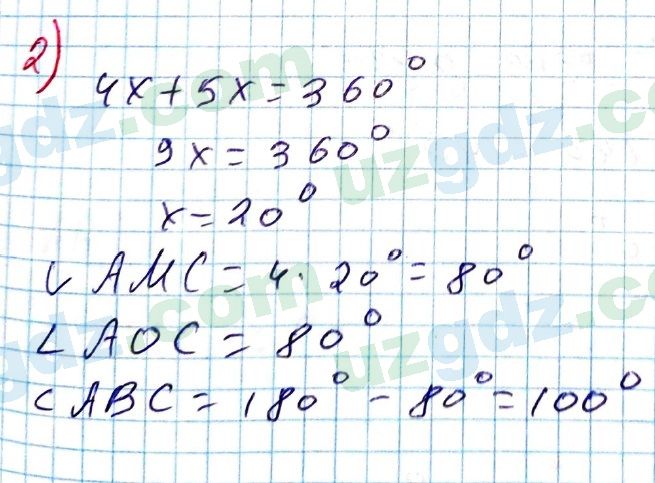 2)
4x+5x=360°
9x=360°
x=20°
∪ AMC=4·20°=80°
∠AOC=80°
∠ABC=180°-80°=100°
uzgdz.com
uzgdz.com
uzgdz.com
uzgdz.com